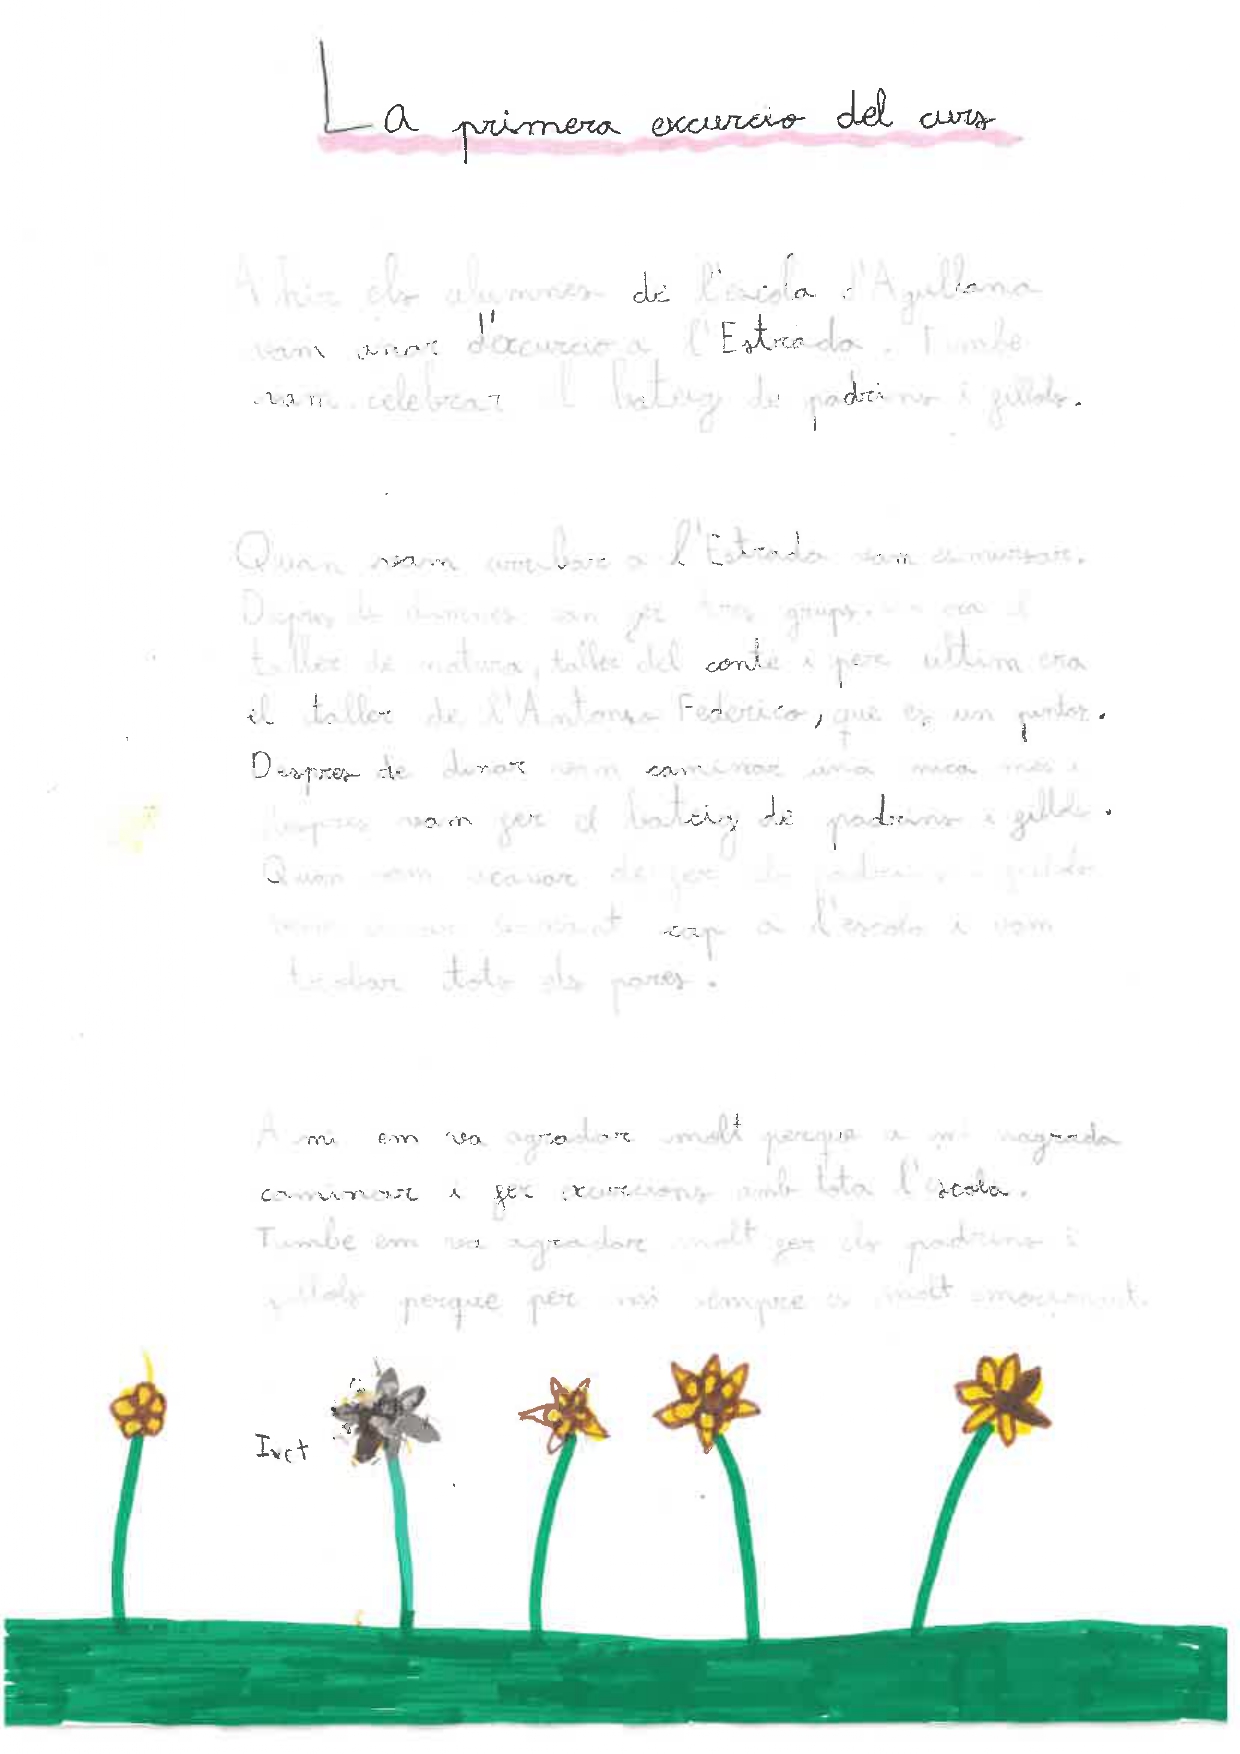 La primera excurcio del curs
Ahir els alumnes de l'escola d'Agullana
vam anar d'excurcio a l'Estrada. Tumbe
vam celebrar el bateig de padrins i fillols.
Quan vam arribar a l'Estrada vam esmursar.
Despres de vam fer tres grups. era el
taller de natura, taller del conte i per ultim era
el taller de l'Antonio Federico, que es un pintor.
Despres de dinar vam caminar una mica mes i
despres vam fer el bateig de padrins i fillols.
Quan vam acavar de fer els padrins i fillols
vam anar cap a l'escola i vam
trobar tots els pares.
A mi em va agradar molt perque a mi magrada
caminar i fer excurcions amb tota l'escola.
Tumbe em va agradar molt fer els padrins i
fillols perque per mi sempre es molt emocionant.